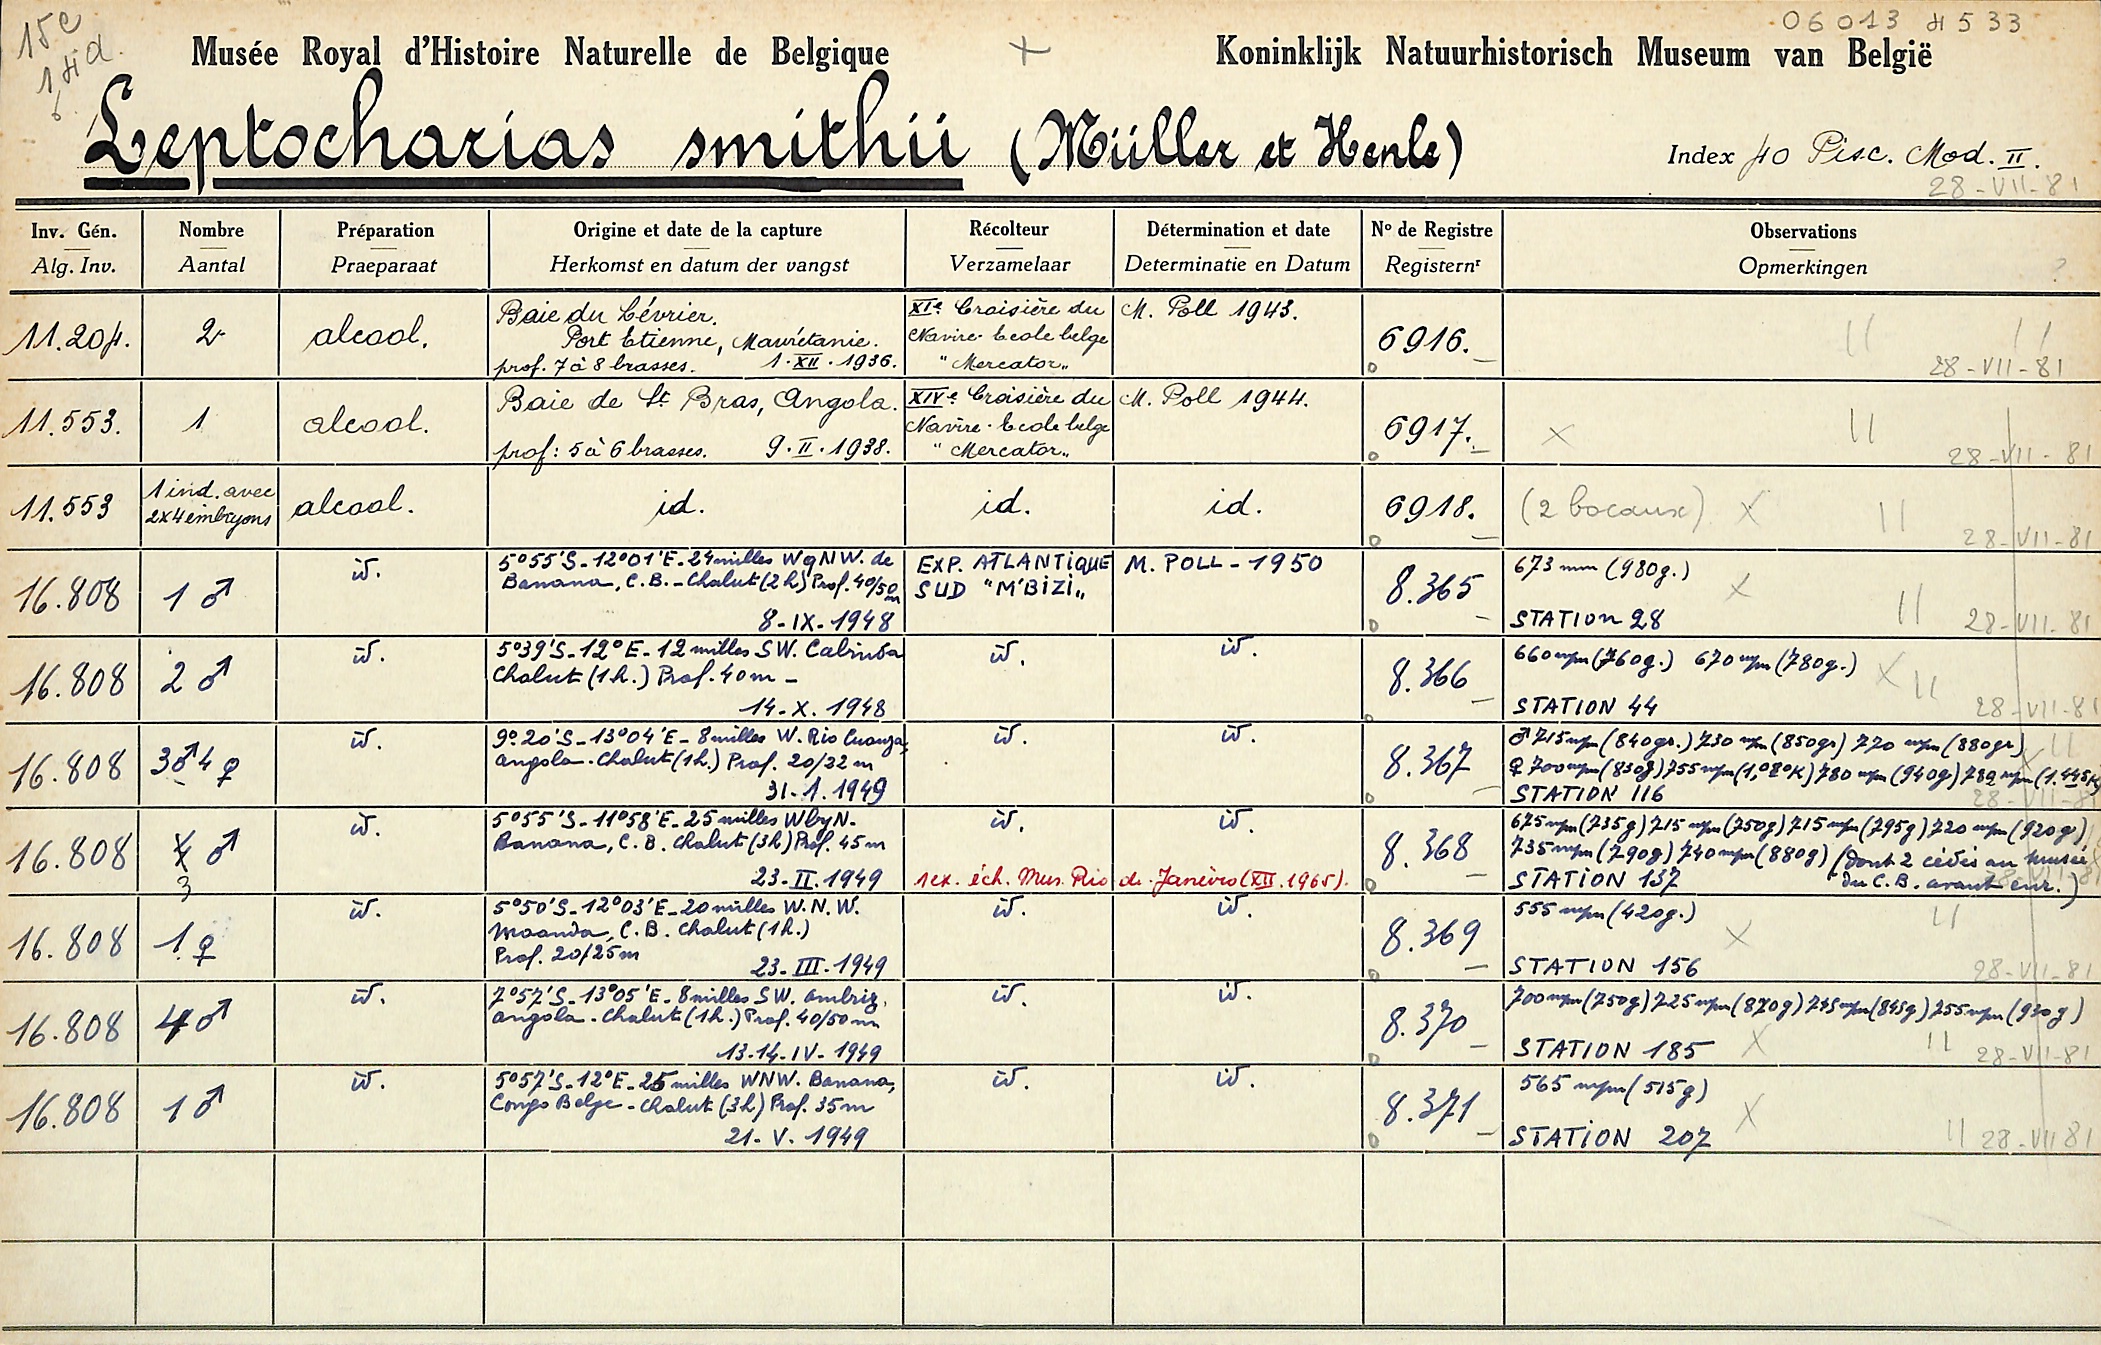 15e
06013 4533
1 Hd.
Musée Royal d'Histoire Naturelle de Belgique
Koninklijk Natuurhistorisch Museum van België
Leptocharias smithii (Müller et Henle)
Index 40 Pisc. Mod. II.
28-VII-81
Inv. Gén. Nombre Préparation Origine et date de la capture Récolteur Détermination et date No de Registre Observations
Alg. Inv. Aantal Praeparaat Herkomst en datum der vangst Verzamelaar Determinatie en Datum Registernr Opmerkingen ?
11.204. 2 alcool. Baie du Lévrier. XIe Croisière du M. Poll 1943. 6916.
Port Etienne, Mauritanie. Navire-Ecole belge
prof. 7 à 8 brasses. 1.XII.1936. "Mercator" 28-VII-81
11.553. 1 alcool. Baie de St Bras, Angola. XIVe Croisière du M. Poll 1944. 6917. X
Navire-Ecole belge
prof: 5 à 6 brasses. 9.II.1938. "Mercator" 28-VII-81
11.553 1 ind. avec alcool. id. id. id. 6918. (2 bocaux) X
2x4 embryons 28-VII-81
16.808 1 ♂ id. 5°55'S-12°01'E-24 milles WqNW. de EXP. ATLANTIQUE M. POLL-1950 8.365 673 mm (980g.) X
Banana, C.B.-Chalut (2h) Prof. 40/50 m SUD "M'BIZI"
8-IX-1948 STATION 28 28-VII-81
16.808 2 ♂ id. 5°39'S-12°E-12 milles SW. Cabinda id. id. 8.366 660 mm (760g.) 670 mm (780g.) X
Chalut (1h.) Prof. 40m-
14-X.1948 STATION 44 28-VII-81
16.808 3♂ 4♀ id. 9°20'S-13°04'E-8 milles W. Rio Cuanza, id. id. 8.367 ♂ 715 mm (840gr.) 730 mm (850gr) 770 mm (880gr)
Angola.Chalut (1h.) Prof. 20/22 m ♀ 700 mm (830g) 755 mm (1,020K) 780 mm (940g) 789 mm (1.445K)
31-1.1949 STATION 116 28-VII-81
16.808 4 ♂ id. 5°55'S-11°58'E-25 milles WbyN- id. id. 8.368 675 mm (735g) 715 mm (750g) 715 mm (795g) 720 mm (920g)
3 Banana, C.B. Chalut (3h) Prof. 45m 735 mm (790g) 740 mm (880g) (dont 2 cédés au Musée
23-II.1949 1 ex. éch. Mus. Rio de Janeiro (XII.1965). STATION 137 du C.B. avant enr.) 28-VII-81
16.808 1 ♀ id. 5°50'S-12°03'E-20 milles W.N.W. id. id. 8.369 555 mm (420g.) X
Moanda, C.B. Chalut (1h.)
Prof. 20/25m 23-III-1949 STATION 156 28-VII-81
16.808 4♂ id. 7°57'S-13°05'E-8 milles SW. Ambriz, id. id. 8.370 700 mm (750g) 725 mm (870g) 745 mm (845g) 755 mm (930g)
Angola.Chalut (1h.) Prof. 40/50m
13-14-IV-1949 STATION 185 X 28-VII-81
16.808 1 ♂ id. 5°57'S-12°E-25 milles WNW. Banana, id. id. 8.371 565 mm (515g)
Congo Belge-Chalut (3h) Prof. 35m X
21-V.1949 STATION 207 28-VII 81